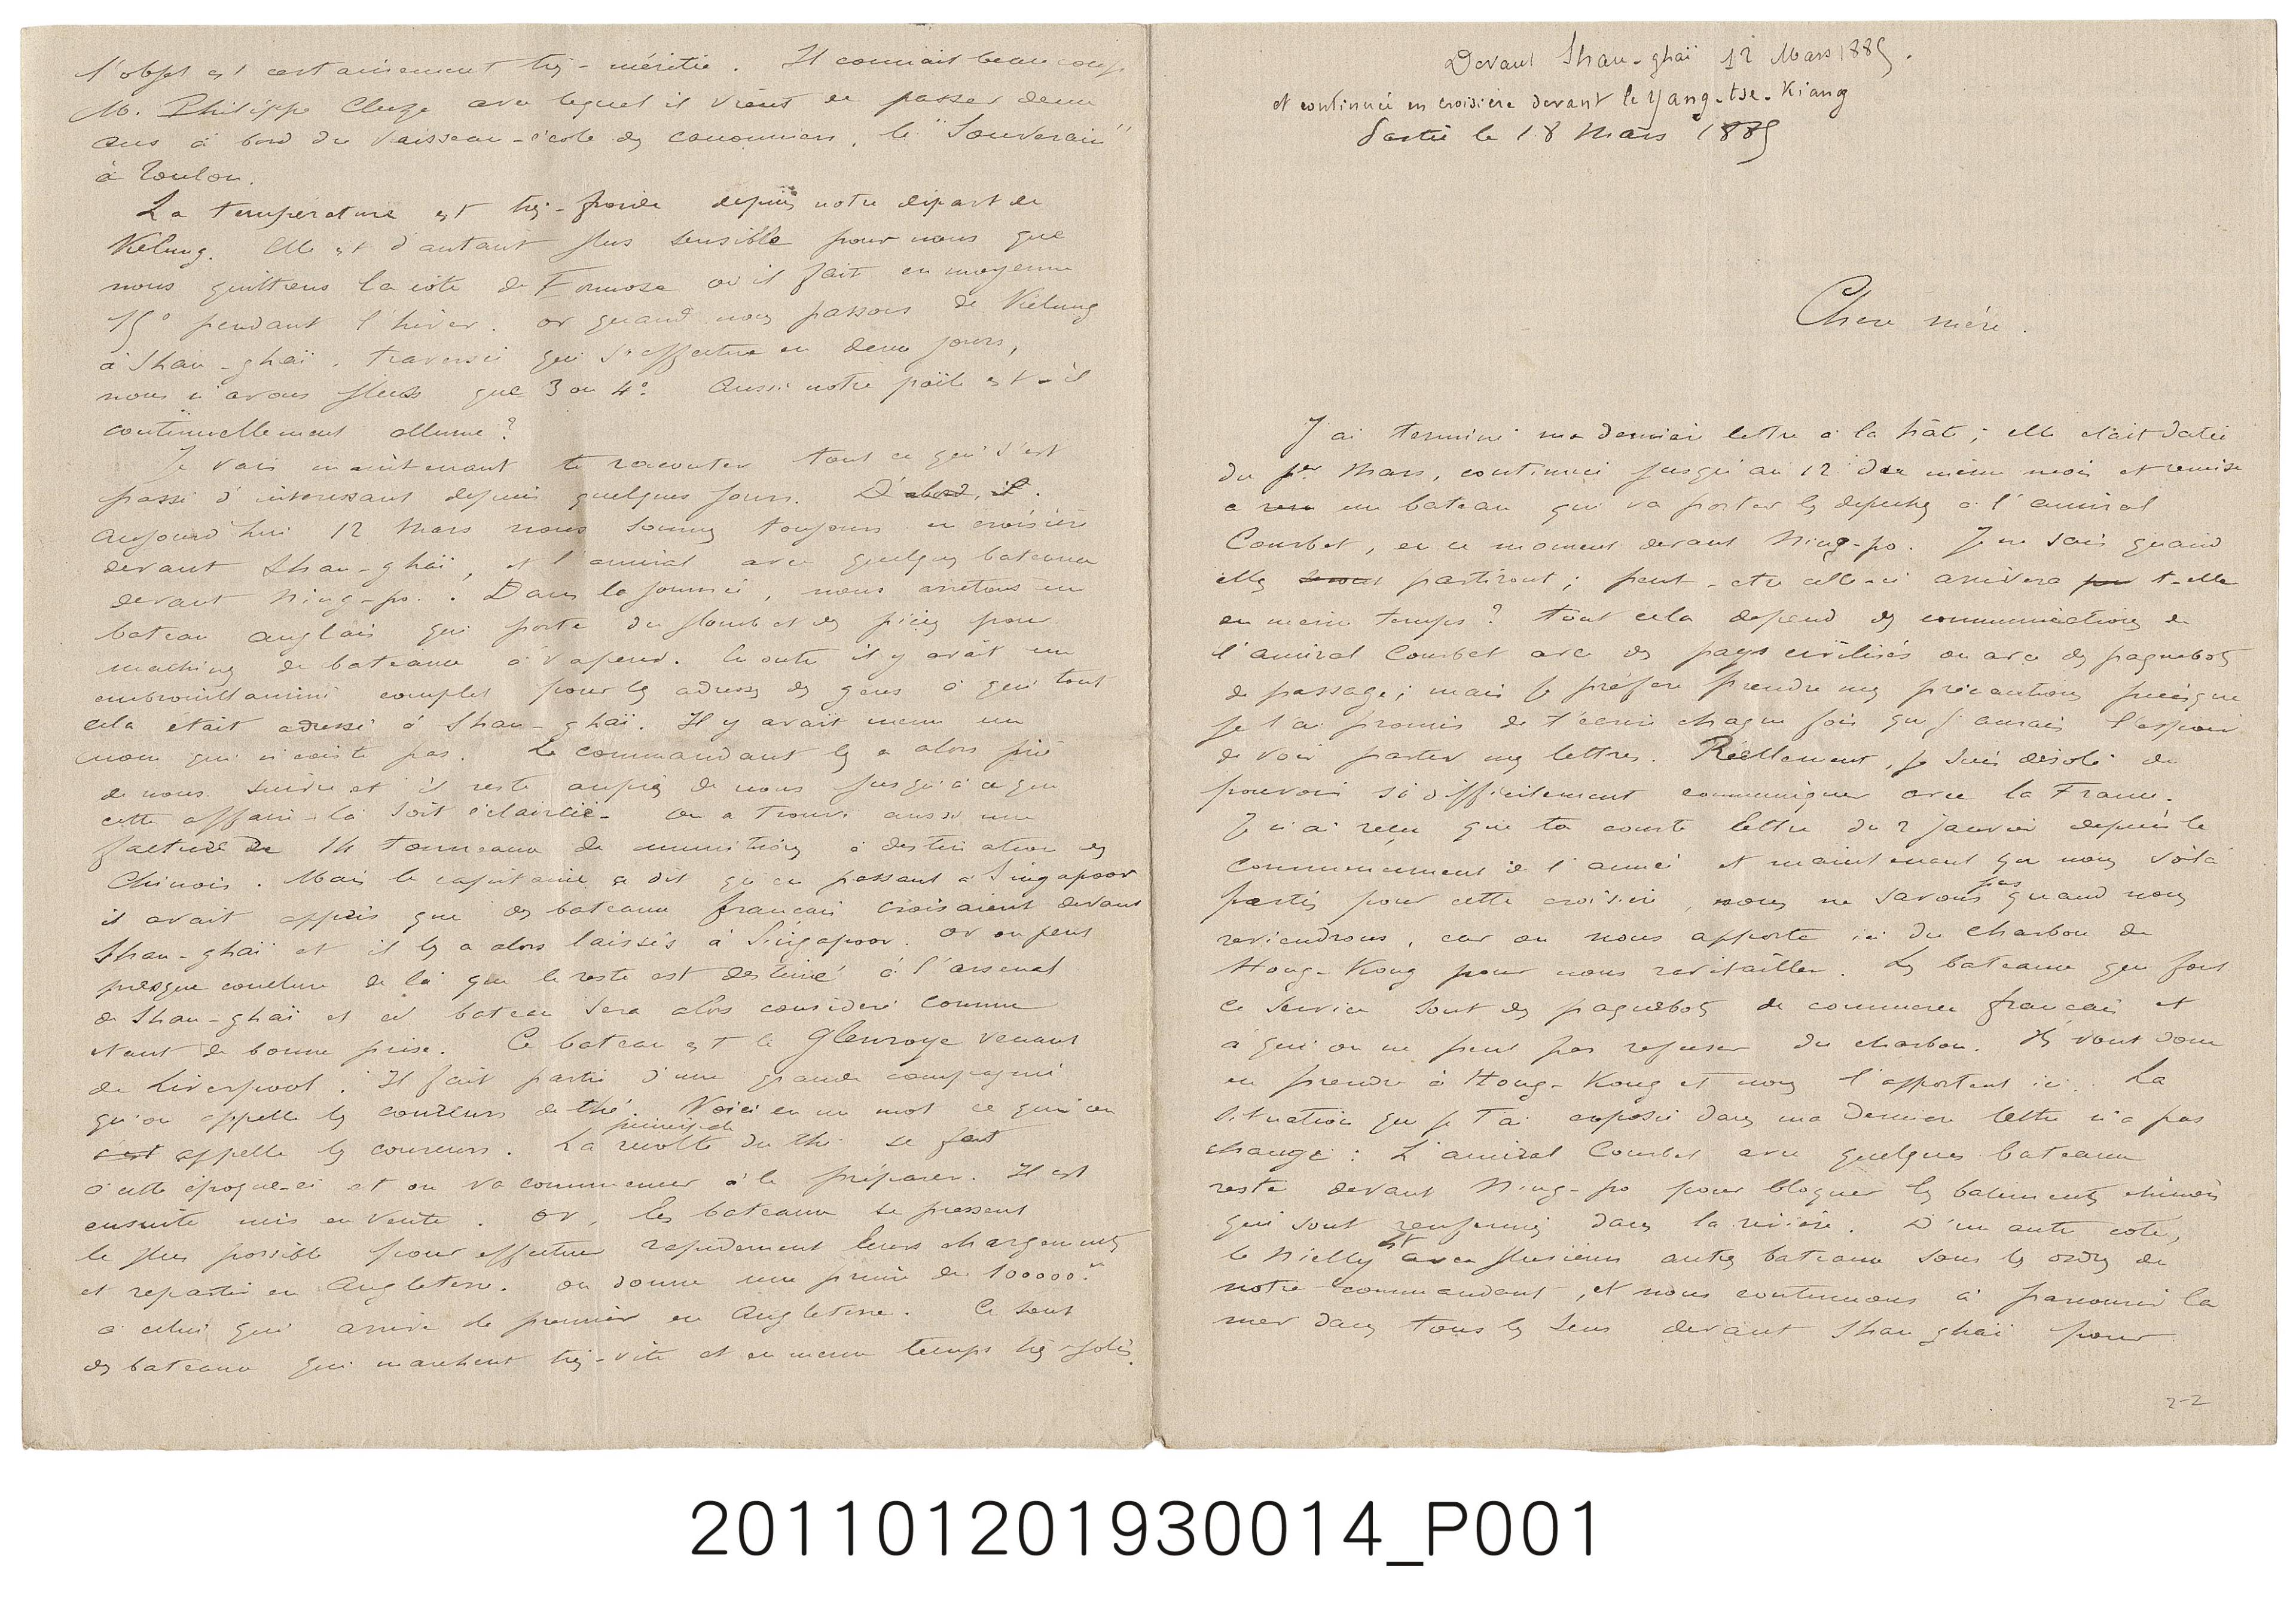 l'objet est certainement très-méritée. Il connait beaucoup
M. Philippe Cluze avec lequel il vient de passer deux
ans à bord du vaisseau-école des canonniers, le "Souverain"
à Toulon.
La température est très-froide depuis notre départ de
Kelung. Elle est d'autant plus sensible pour nous que
nous quittons la côte de Formose où il fait en moyenne
15° pendant l'hiver. or quand nous passons de Kelung
à Shan-ghaï, traversée qui s'effectue en deux jours,
nous n'avons plus que 3 ou 4°. Aussi notre poële est-il
continuellement allumé?
Je vais maintenant te raconter tout ce qui s'est
passé d'intéressant depuis quelques jours. D'abord, il.
Aujourd'hui 12 Mars nous sommes toujours en croisière
devant Shan-ghaï, et l'amiral avec quelques bateaux
devant Ning-po. Dans la journée, nous arrêtons un
bateau anglais qui porte du plomb et des pièces pour
machines de bateaux à vapeur. En outre il y avait un
embrouillamini complet pour les adresses des gens à qui tout
cela était adressé à Shan-ghaï. Il y avait même un
nom qui n'existe pas. Le commandant les a alors prié
de nous suivre et il reste auprès de nous jusqu'à ce que
cette affaire-là soit éclaircie. on a trouvé aussi une
facture de 14 tonneaux de munitions à destination des
Chinois. Mais le capitaine a dit qu'en passant à Singapoor
il avait appris que des bateaux français croisaient devant
Shan-ghaï et il les a alors laissés à Singapoor. Or on peut
presque conclure de là que le reste est destiné à l'arsenal
de Shan-ghaï et ce bateau sera alors considéré comme
étant de bonne prise. Ce bateau est le Glenroye venant
de Liverpool. Il fait partie d'une grande compagnie
qu'on appelle les coureurs de thé. Voici en un mot ce qu'on
c'est appelle les coureurs. La principale récolte du thé se fait
à cette époque-ci et on va commencer à le préparer. Il est
ensuite mis en vente. or, les bateaux se pressent
le plus possible pour effectuer rapidement leurs chargements
et repartir en Angleterre. on donne une prime de 100000 f
à celui qui arrive le premier en Angleterre. Ce sont
des bateaux qui marchent très-vite et en même temps très-jolis.
Devant Shan-ghaï 12 Mars 1885.
et continuée en croisière devant le Yang-tse-Kiang
Partie le 18 Mars 1885
Chère mère.
J'ai terminé ma dernière lettre à la hâte; elle était datée
du 1er Mars, continuée jusqu'au 12 du même mois et remise
à un bateau qui va porter les dépêches à l'amiral
Courbet, en ce moment devant Ning-po. Je ne sais quand
elles seront partiront; peut-être celle-ci arrivera t-elle
en même temps? tout cela dépend des communications de
l'amiral Courbet avec des pays civilisés ou avec des paquebots
de passage; mais je préfère prendre mes précautions puisque
je t'ai promis de t'écrire chaque fois que j'aurais l'espoir
de voir partir mes lettres. Réellement, je suis désolé de
pouvoir si difficilement communiquer avec la France.
Je n'ai reçu que ta courte lettre du 2 janvier depuis le
commencement de l'année et maintenant que nous voilà
partis pour cette croisière, nous ne savons pas quand nous
reviendrons, car on nous apporte ici du charbon de
Hong-Kong pour nous ravitailler. Les bateaux qui font
ce service sont des paquebots de commerce français et
à qui on ne peut pas refuser du charbon. Ils vont donc
en prendre à Hong-Kong et nous l'apportent ici. La
situation que je t'ai exposée dans ma dernière lettre n'a pas
changé: L'amiral Courbet avec quelques bateaux
reste devant Ning-po pour bloquer les batiments chinois
qui sont renfermés dans la rivière. D'un autre côté,
le Nielly est avec plusieurs autres bateaux sous les ordres de
notre commandant, et nous continuons à parcourir la
mer dans tous les sens devant Shan ghaï pour
2-2
201101201930014_P001